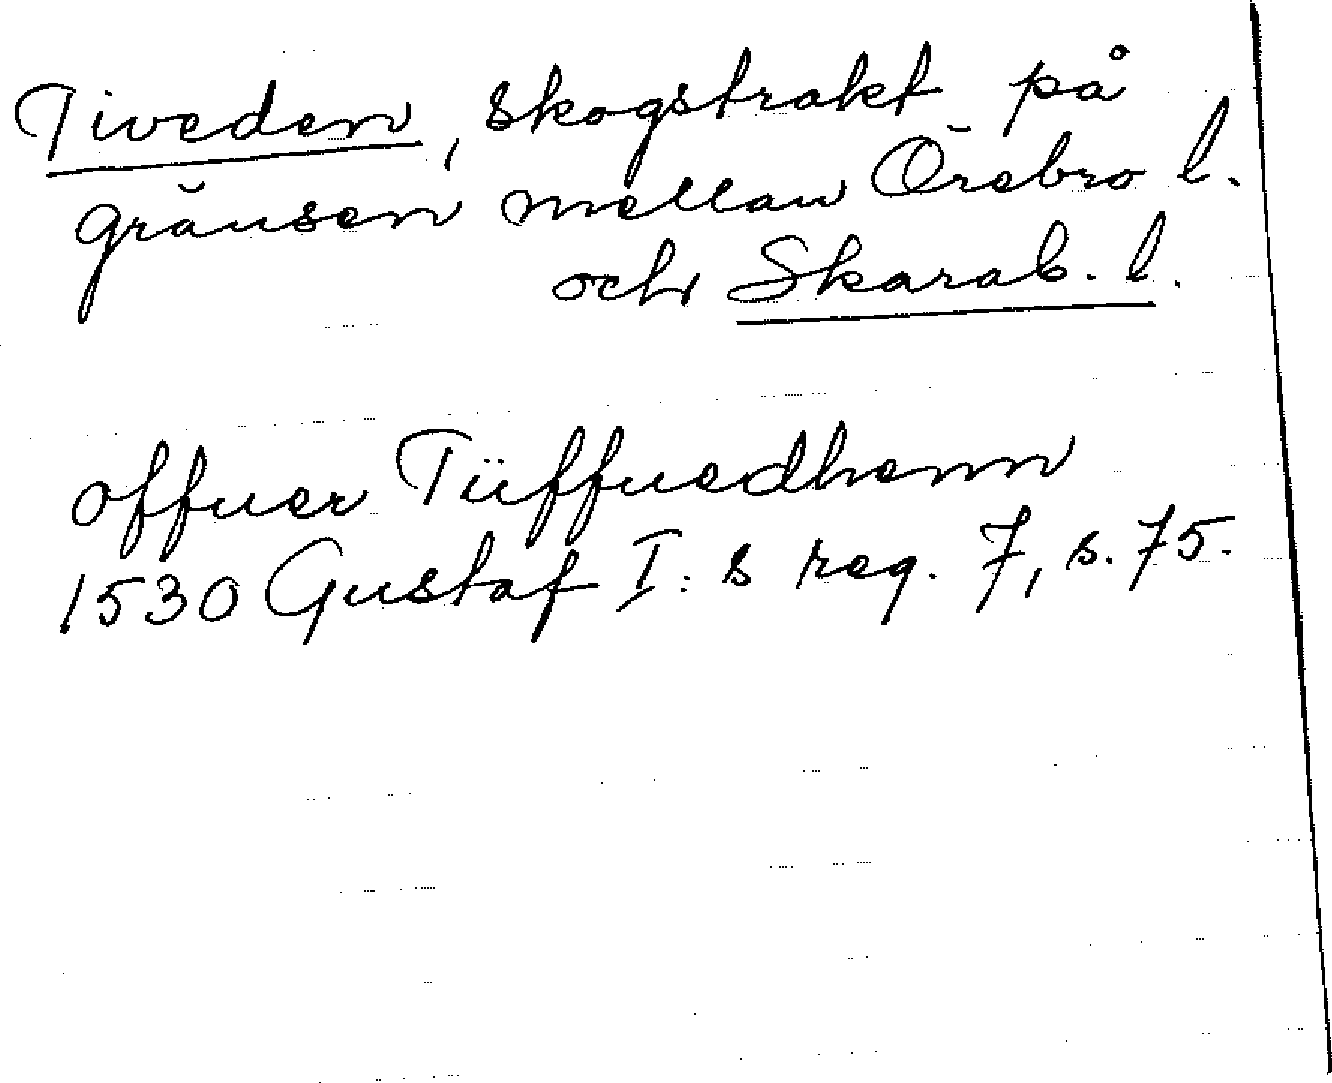 Tiveden, skogstrakt på
gränsen mellan Örebro l.
och Skarab. l.
offuer Tüffuedhenn
1530 Gustaf I:s reg. 7, s. 75.